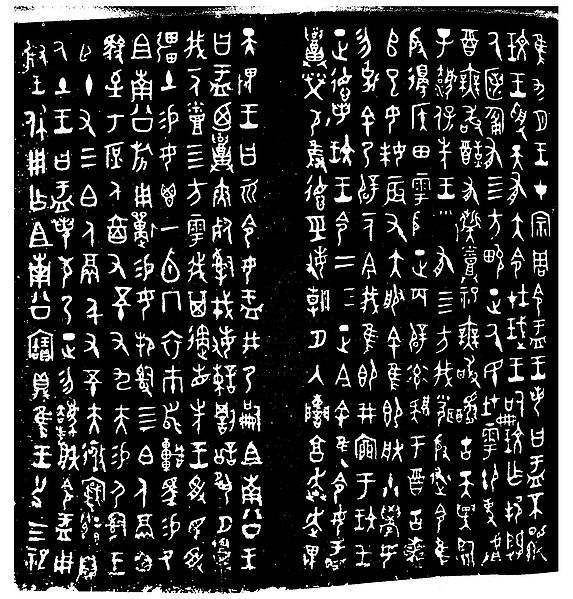 隹九月王才宗周令盂王若曰盂不顯
玟王受天有大令在珷王嗣玟乍邦闢
氒匿匍有四方畯正氒民在雩御事
酉無敢酖有髭蒸祀無敢醻古天異臨
子灋保先王有四方我聞殷述令隹
殷邊侯田雩殷正百辟率肄于酉古喪
𠂤巳女妹辰又大服余隹即朕小學女
勿克余乃辟一人今我隹即井㐭于玟王
正德若玟王令二三正今余隹令女盂
召榮敬雝德巠敏朝夕入讕享奔走畏
天畏王曰而令女盂井乃嗣且南公王
曰盂乃召夾死司戎敏諫罰訟夙夕召
我一人烝四方雩我其遹省先王受民受
疆土易女鬯一卣冂衣巿舄車馬易乃
且南公旂用狩易女邦司四白人鬲自
馭至于庶人六百又五十又九夫易尸司王
臣十又三白人鬲千又五十夫遷自
氒土王曰盂若敬乃正勿灋朕令盂用
對王休用乍且南公寶鼎隹王廿又三祀